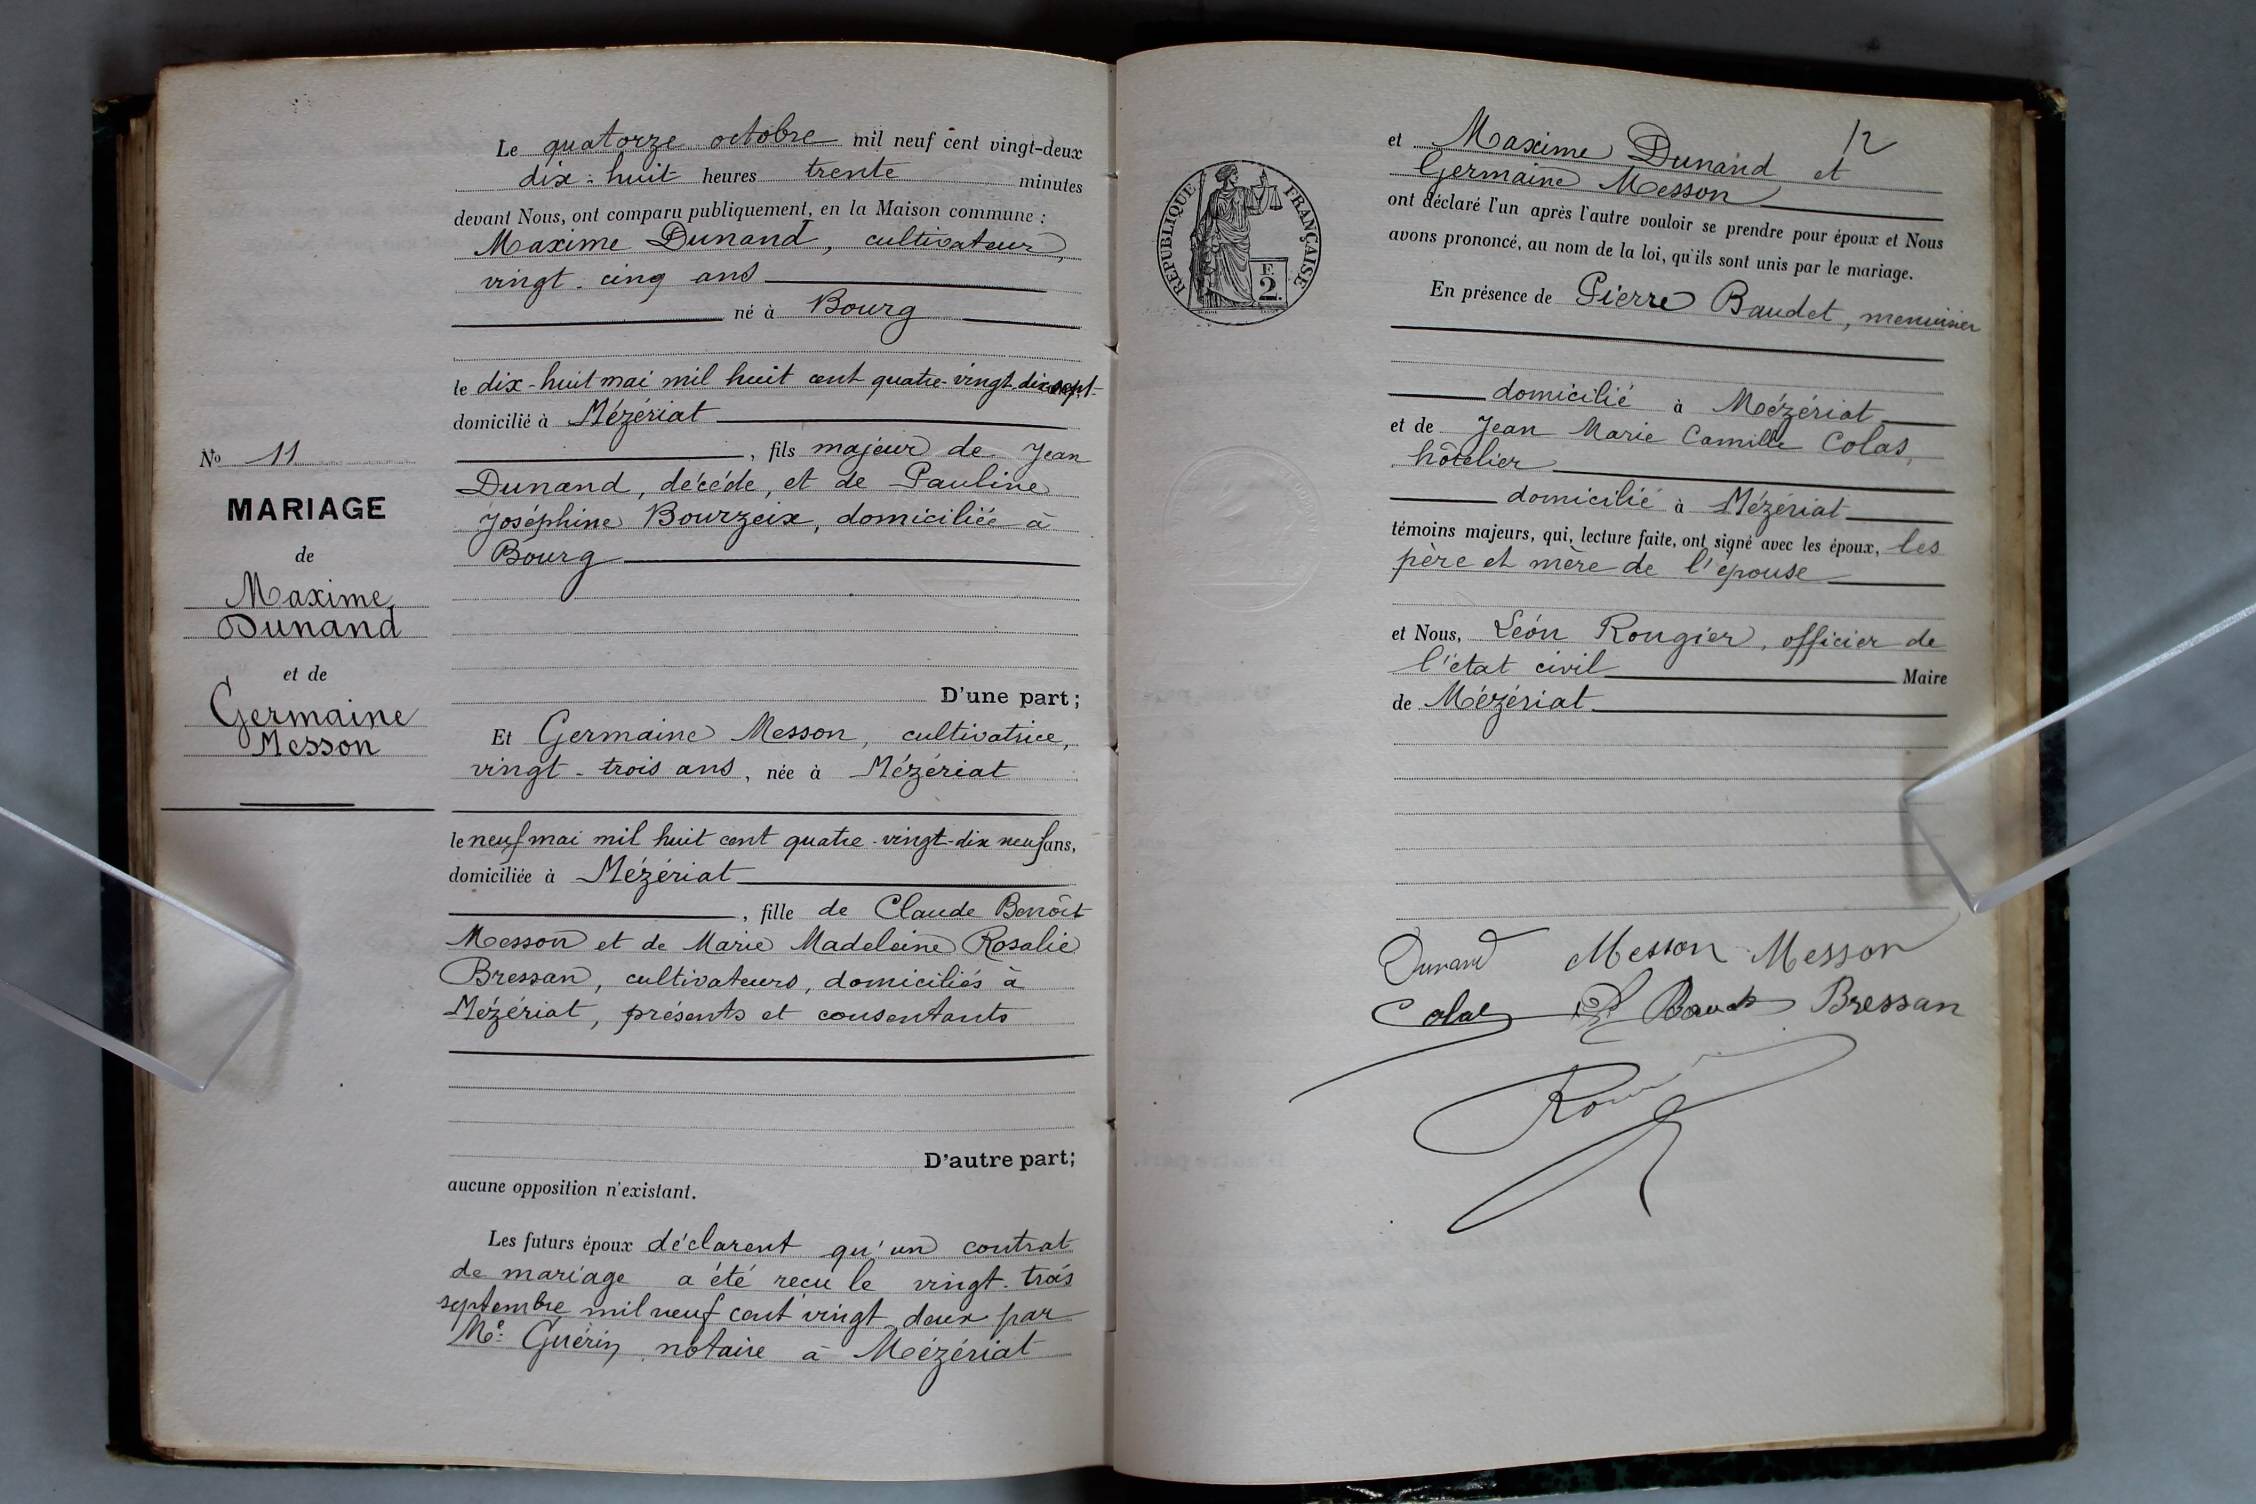 Le quatorze octobre mil neuf cent vingt-deux
dix-huit heures trente minutes
devant Nous, ont comparu publiquement, en la Maison commune :
Maxime Dunand, cultivateur,
vingt-cinq ans
né à Bourg
le dix-huit mai mil huit cent quatre-vingt-dix sept
domicilié à Mézériat
, fils majeur de Jean
Dunand, décédé, et de Pauline
Joséphine Bourzeix, domiciliée à
Bourg
D'une part;
Et Germaine Messon, cultivatrice,
vingt-trois ans, née à Mézériat
le neuf mai mil huit cent quatre-vingt-dix neuf ans,
domiciliée à Mézériat
, fille de Claude Benoît
Messon et de Marie Madeleine Rosalie
Bressan, cultivateurs, domiciliés à
Mézériat, présents et consentants
D'autre part;
aucune opposition n'existant.
Les futurs époux déclarent qu'un contrat
de mariage a été reçu le vingt-trois
septembre mil neuf cent vingt-deux par
Me Guérin notaire à Mézériat
No 11
MARIAGE
de
Maxime
Dunand
et de
Germaine
Messon
12
et Maxime Dunand et
Germaine Messon
ont déclaré l'un après l'autre vouloir se prendre pour époux et Nous
avons prononcé, au nom de la loi, qu'ils sont unis par le mariage.
En présence de Pierre Baudet, menuisier
domicilié à Mézériat
et de Jean Marie Camille Colas,
hôtelier
domicilié à Mézériat
témoins majeurs, qui, lecture faite, ont signé avec les époux, les
père et mère de l'épouse
et Nous, Léon Rougier, officier de
l'état civil Maire
de Mézériat
Dunand Messon Messon
Colas Baudet Bressan
RÉPUBLIQUE FRANÇAISE
F.
2.